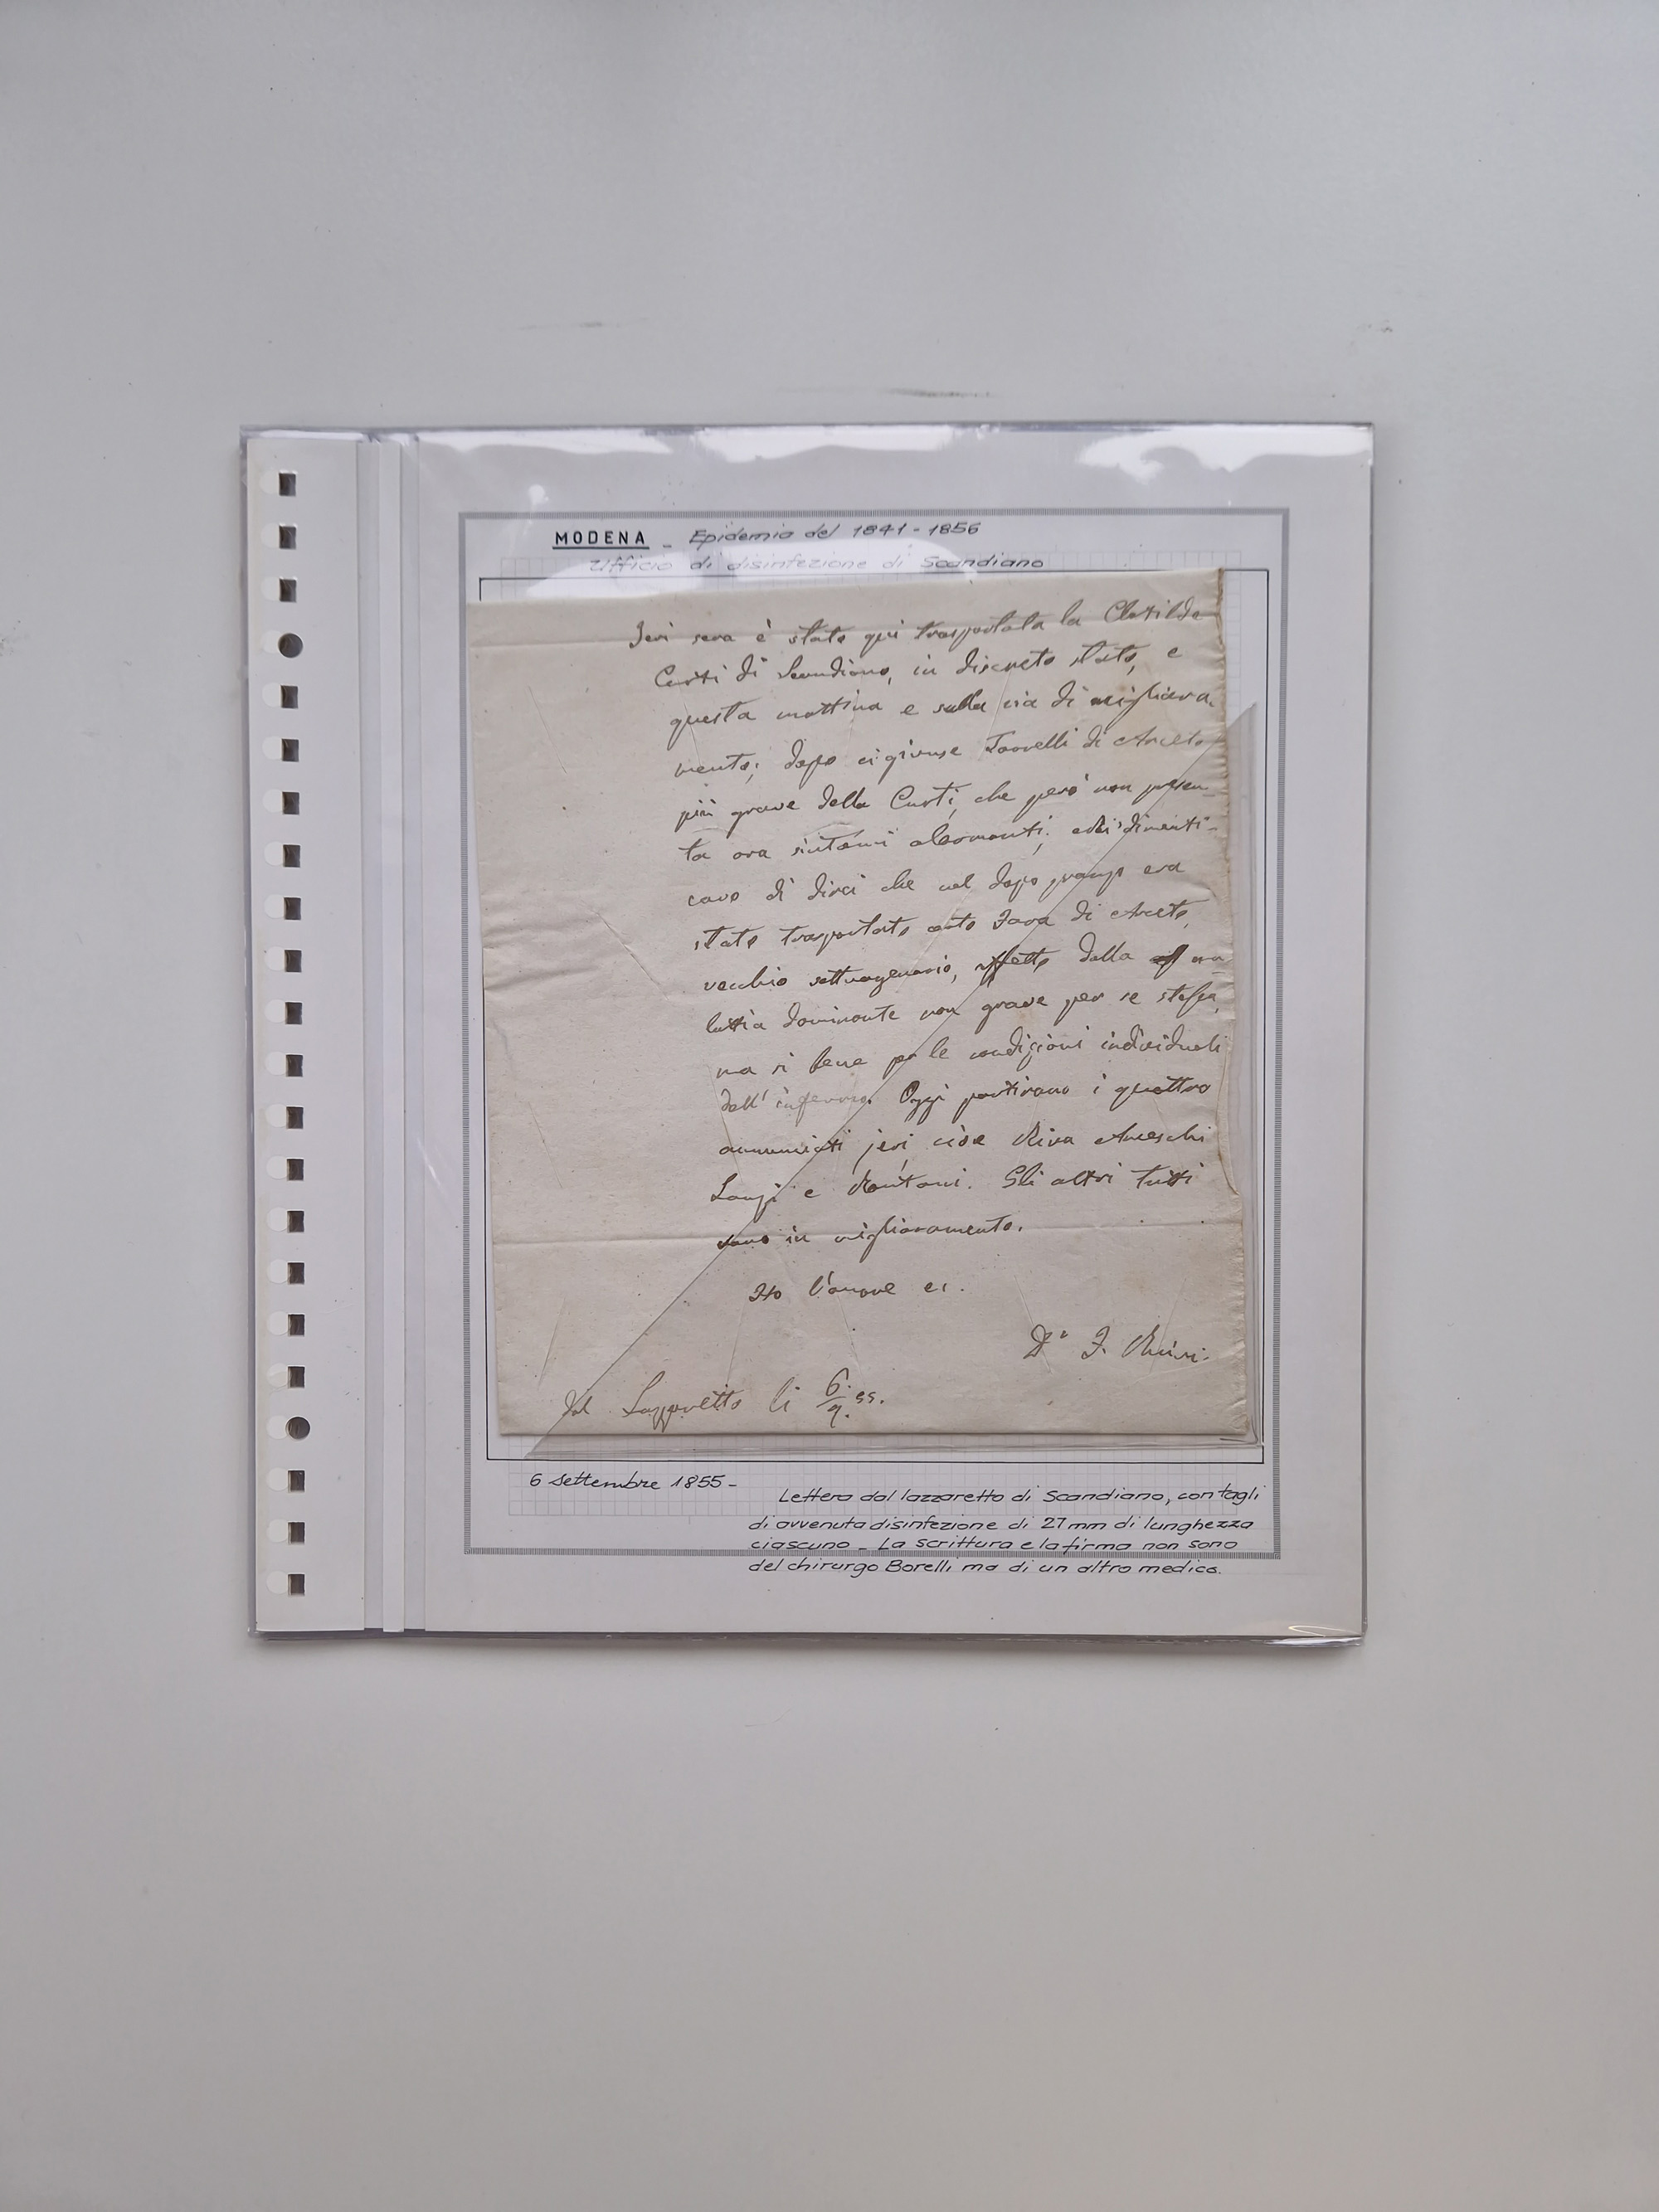 MODENA - Epidemia del 1841 - 1856
Ufficio di disinfezione di Scandiano
Jeri sera è stata qui trasportata la Clotilde
Curti di Scandiano, in discreto stato, e
questa mattina e sulla via di migliora-
mento; dopo ci giunse di Arceto
più grave della Curti, che però non presen-
ta ora sintomi alarmanti; dimenti-
cavo di dirci che nel dopo pranzo era
stato trasportato certo Fava di Arceto,
vecchio settuagenario, affetto dalla ma-
lattia dominante non grave per se stessa,
ma si bene per le condizioni individuali
dell' infermo. Oggi partirano i quattro
annunciati jeri, cioe Riva
e Montani. Gli altri tutti
sono in miglioramento.
Ho l'onore ec.
Dr. F.
Dal Lazzaretto li 6/9. 55.
6 settembre 1855-
Lettera dal lazzaretto di Scandiano, con tagli
di avvenuta disinfezione di 27 mm di lunghezza
ciascuno - La scrittura e la firma non sono
del chirurgo Borelli ma di un altro medico.